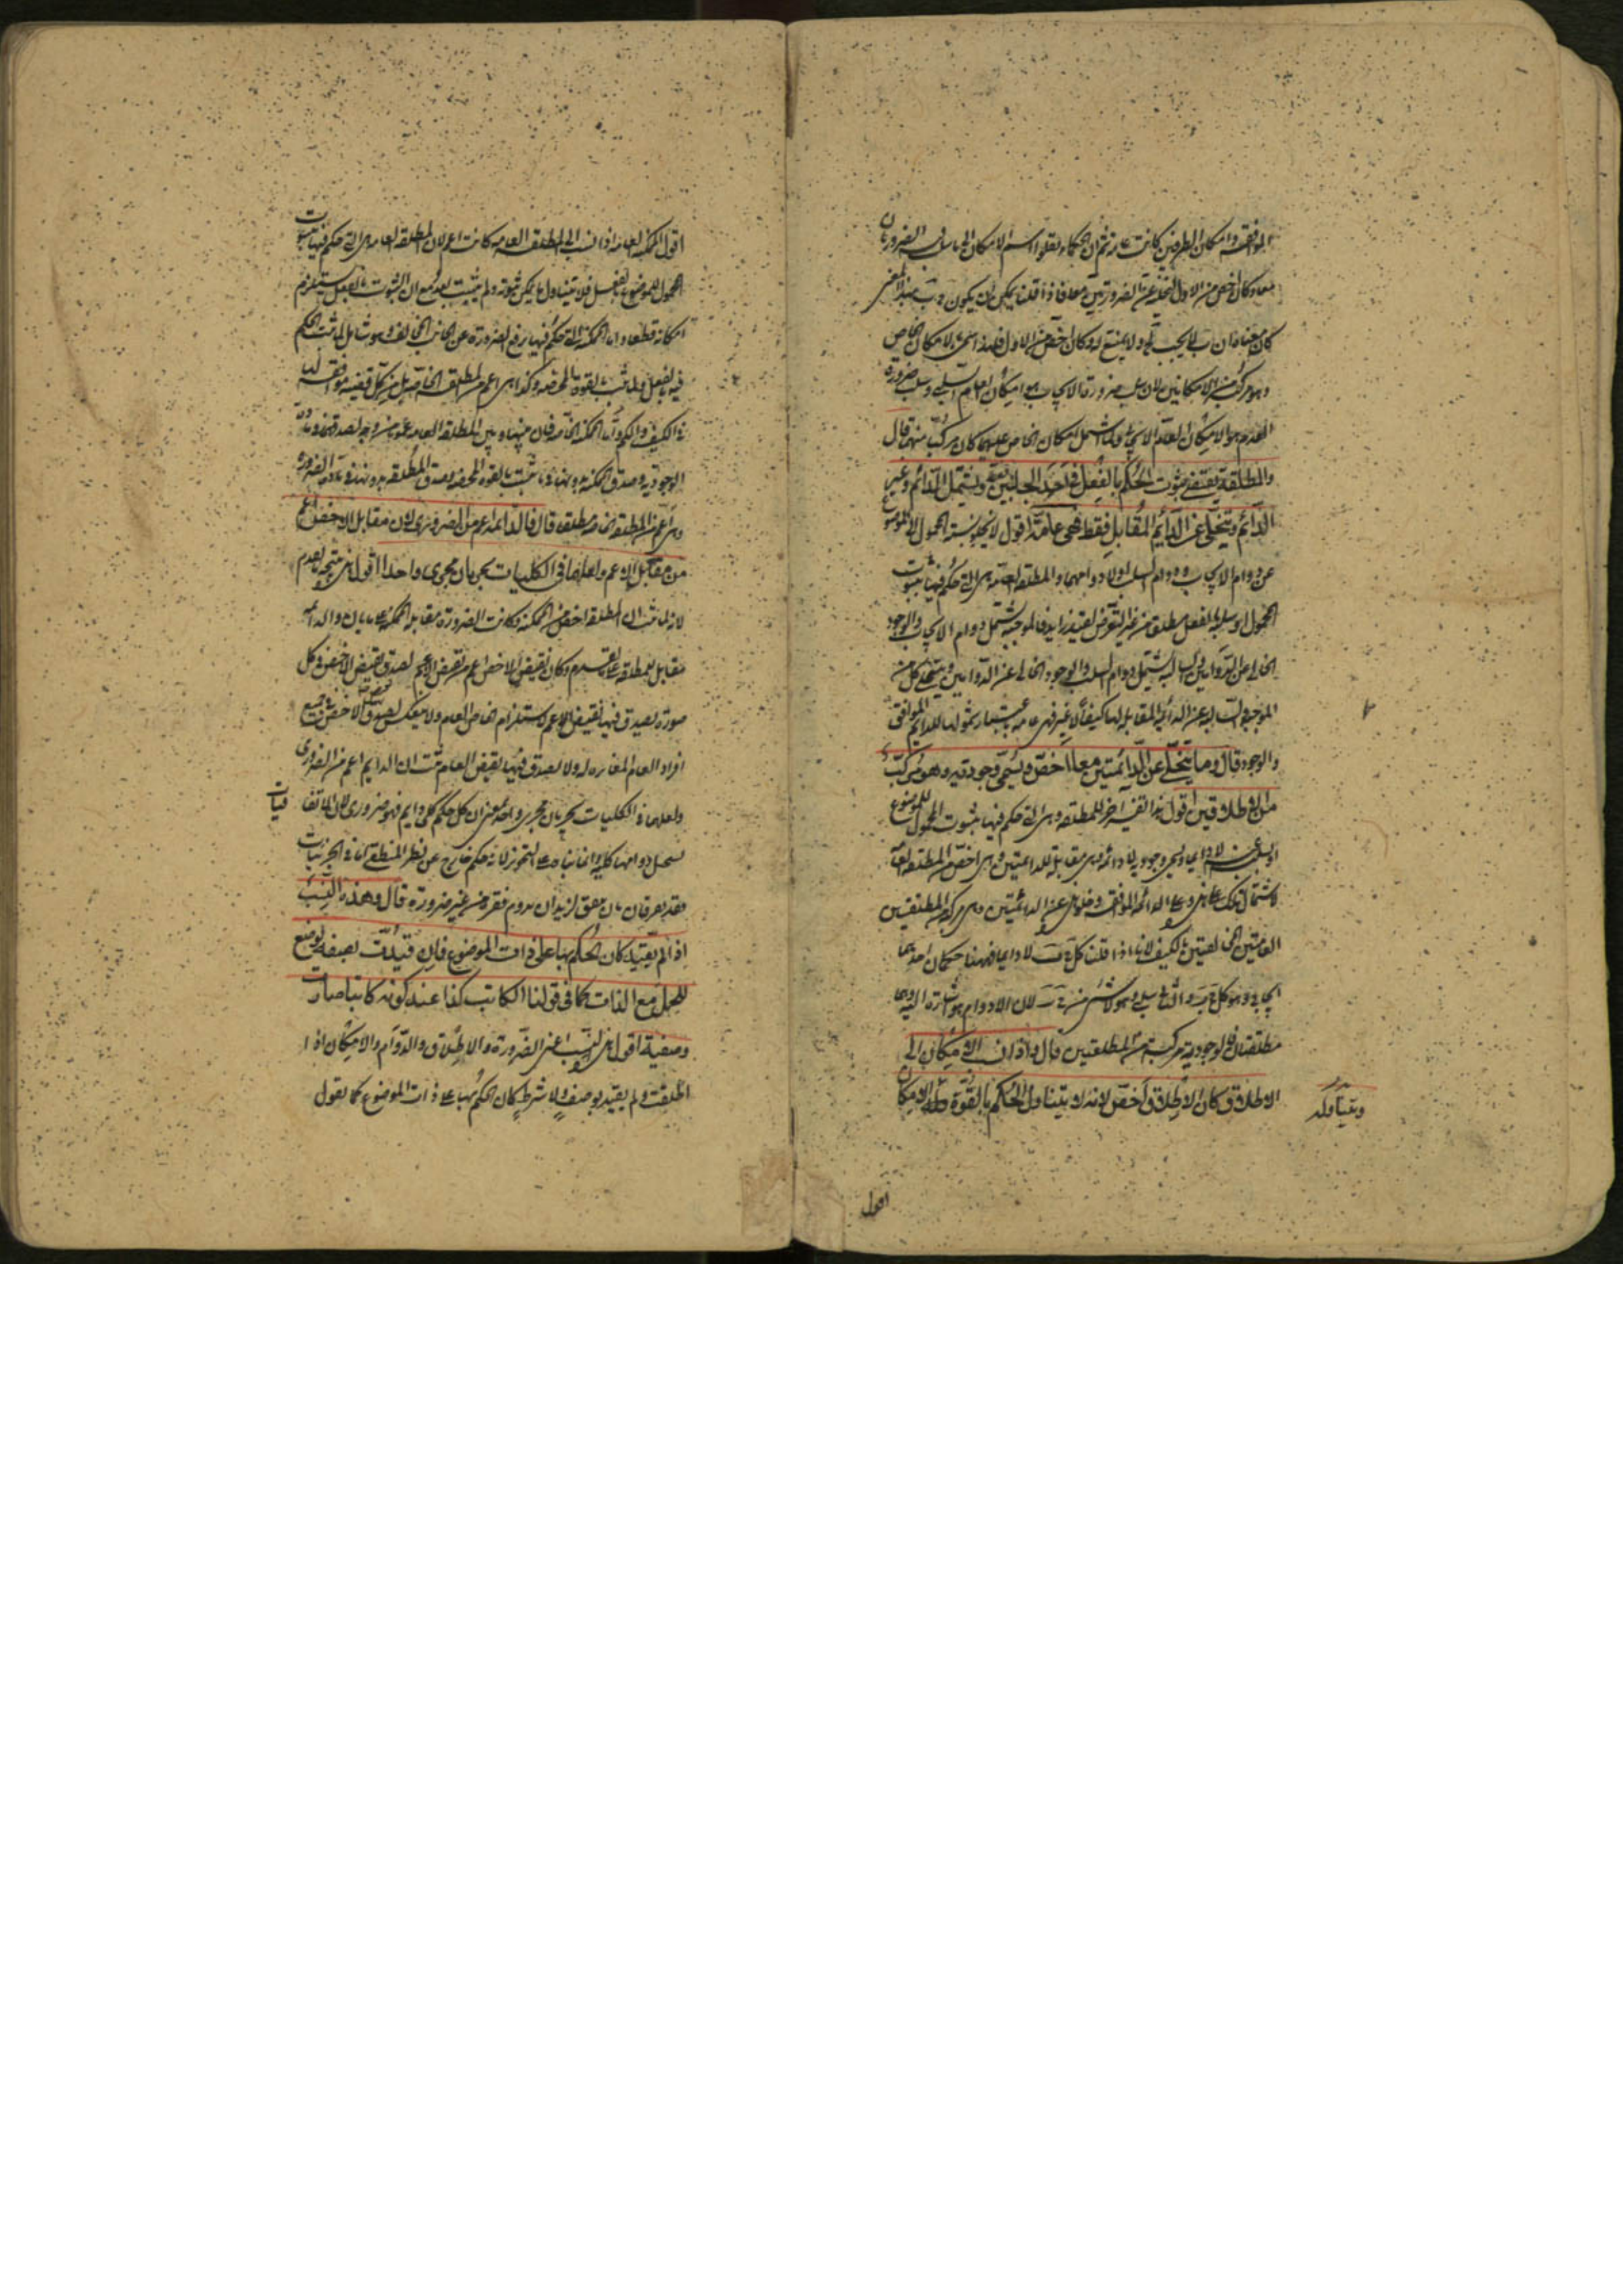 الموافقة وامكان الطرفين كانت عامة ثم ان الحكماء نقلوا اسم الامكان الى ما سلب الضرورتان
معا وكان اخص من الاول لتخليه عن الضرورتين معا فاذا قلنا يمكن ان يكون ب بهذا المعنى
كان معناه ان ب لا يجب له ولا يمتنع له وكان اخص من الاول فلهذا سمى بالامكان الخاص
وهو مركب من الامكانين لان سلب ضرورة الايجاب هو امكان العام السلبى وسلب ضرورة
العدم هو الامكان العام الايجابى ولما اشتمل الامكان الخاص عليهما كان مركبا منهما قال
والمطلقة يقتضى ثبوت الحكم بالفعل فى احد الجانبين فقط ويشتمل الدائم وغير
الدائم ويتخلى عن الدائم المقابل فقط فهى عامة اقول لا يخلو نسبة المحمول الى الموضوع
عن دوام الايجاب ودوام السلب او لا دوامهما والمطلقة العامة هى التى حكم فيها بثبوت
المحمول او سلبه بالفعل مطلقا من غير التعرض لقيد زايد فالموجبة تشتمل دوام الايجاب والوجود
الخالى عن الدوامين والسالبة تشتمل دوام السلب والوجود الخالى عن الدوامين ويتخلى كل من
الموجبة والسالبة عن الدائمة المقابلة لها كيفا لا غير فهى عامة باعتبار شمولها للدايم الموافق
والوجود قال وما يتخلى عن الدائمتين معا اخص ويسمى وجودية وهو مركب
من الاطلاقين اقول هذا تفسير اخر للمطلقة وهى التى حكم فيها بثبوت المحمول للموضوع
او بسلبه عنه لا دايما ويسمى وجودية لا دائمة وهى مقابلة للدائمتين وهى اخص من المطلقة العامة
لاشتمال تلك على هذه وعلى الدائمة الموافقة وخلو هذه عن الدائمتين وهى مركبة من المطلقتين
العامتين المخالفتين بالكيف لانا اذا قلنا كل ج ب لا دايما فههنا حكمان احدهما
ايجابى وهو كل ج ب والثانى سلبى وهو لا شئ من ج ب لان اللادوام هو اشارة اليه وهما
مطلقتان فالوجودية مركبة من المطلقتين قال واذا نسب الامكان الى
الاطلاق كان الاطلاق اخص لانه لا يتناول الحكم بالقوة والامكان
ويتناوله
اقول
اقول الممكنة العامة اذا نسب الى المطلقة العامة كانت اعم لان المطلقة العامة هى التى حكم فيها بثبوت
المحمول للموضوع بالفعل فلا يتناول ما يمكن ثبوته ولم يثبت بعد مع ان الثبوت بالفعل يستلزم
امكانه قطعا واما الممكنة التى حكم فيها برفع الضرورة عن الجانب المخالف وهو شامل لما ثبت الحكم
فيه بالفعل ولما ثبت بالقوة المحضة وكذا هى اعم من المطلقة الخاصة بل من كل قضية موافقة لها
فى الكيف والكم واما الممكنة الخاصة فان بينها وبين المطلقة العامة عموما من وجه لصدقهما فى مادة
الوجودية وصدق الممكنة بدونها فيما ثبت بالقوة المحضة وصدق المطلقة بدونها فى مادة الضرورة
وهى اعم من المطلقة الخاصة مطلقا قال فالدائمة اعم من الضرورى لان مقابل الاخص اعم
من مقابل الاعم ولعلها فى الكليات يجريان مجرى واحدا اقول هذه نتيجة لما تقدم
لانه لما ثبت ان المطلقة اخص من الممكنة وكانت الضرورة مقابلة الممكنة على ما بان والدائمة
مقابل للمطلقة على ما تقدم وكان نقيض الاخص اعم من نقيض الاعم لصدق نقيض الاخص فى كل
صورة يصدق فيها نقيض الاعم لاستلزام الخاص العام ولا ينعكس لصدق نقيض الاخص فى جميع
افراد العام المغايرة له ولا يصدق فيها نقيض العام ثبت ان الدايم اعم من الضرورى
ولعلهما فى الكليات يجريان مجرى واحد يعنى ان كل حكم كلى دايم فهو ضرورى لان الاتفا
قيات
يستحيل دوامها كلية وانما بناء على التجوز لانه حكم خارج عن نظر المنطقى اما فى الجزئيات
فقد يفرقان بان يتفق لزيد ان يدوم فقره من غير ضرورة قال وهذه النسب
اذا لم يتقيد كان الحكم بها على ذات الموضوع فان قيدت بصفة توضع
للحمل مع الذات كما فى قولنا الكاتب كذا عند كونه كاتبا صارت
وصفية اقول هذه النسب اعنى الضرورة والاطلاق والدوام والامكان اذا
اطلقت ولم يقيد بوصف ولا شرط كان الحكم بها على ذات الموضوع كما تقول